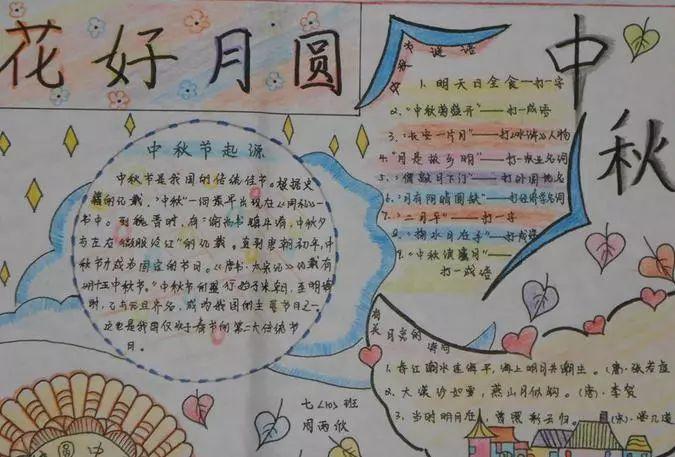 花好月圆
中秋
中秋节起源
中秋节是我国的传统佳节。根据史
籍的记载,“中秋”一词最早出现在《周礼》一
书中。到魏晋时,有“谕尚书镇牛渚,中秋夕
与左右微服泛江”的记载。直到唐朝初年,中
秋节才成为固定的节日。《唐书·太宗记》记载有
“八月十五中秋节”。中秋节的盛行始于宋朝,至明清
时,已与元旦齐名,成为我国的主要节日之一。
这也是我国仅次于春节的第二大传统节
日。
中秋灯谜语
1、明天日全食—打一字
2、“中秋菊盛开”—打一成语
3、“长安一片月”—打《水浒》人物
4、“月是故乡明”—打一农业名词
5、“僧敲月下门”—打外国地名
6、“月有阴晴圆缺”—打经济学名词
7、“二月平”—打一字
8、“掬水月在手”—打成语
9、“中秋度蜜月”—
打一成语
有关月亮的诗词
1、春江潮水连海平,海上明月共潮生。(唐·张若虚
2、大漠沙如雪,燕山月似钩。(唐)·李贺
3、当时明月在,曾照彩云归。(宋)·晏几道
七<10>班
周雨欣
中
圆